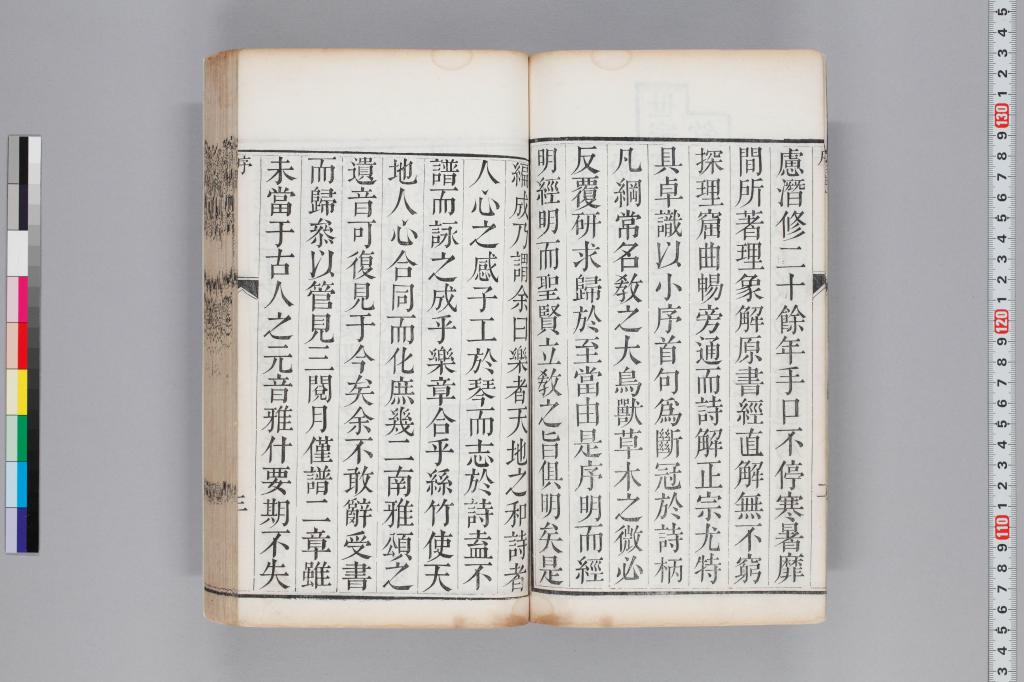 慮潛修二十餘年手口不停寒暑靡
間所著理象解原書經直解無不窮
探理窟曲暢旁通而詩解正宗尤特
具卓識以小序首句爲斷冠於詩柄
凡綱常名敎之大鳥獸草木之微必
反覆研求歸於至當由是序明而經
明經明而聖賢立敎之旨俱明矣是
編成乃謂余曰樂者天地之和詩者
人心之感子工於琴而志於詩盍不
譜而詠之成乎樂章合乎絲竹使天
地人心合同而化庶幾二南雅頌之
遺音可復見于今矣余不敢辭受書
而歸叅以管見三閱月僅譜二章雖
未當于古人之元音雅什要期不失
序
三